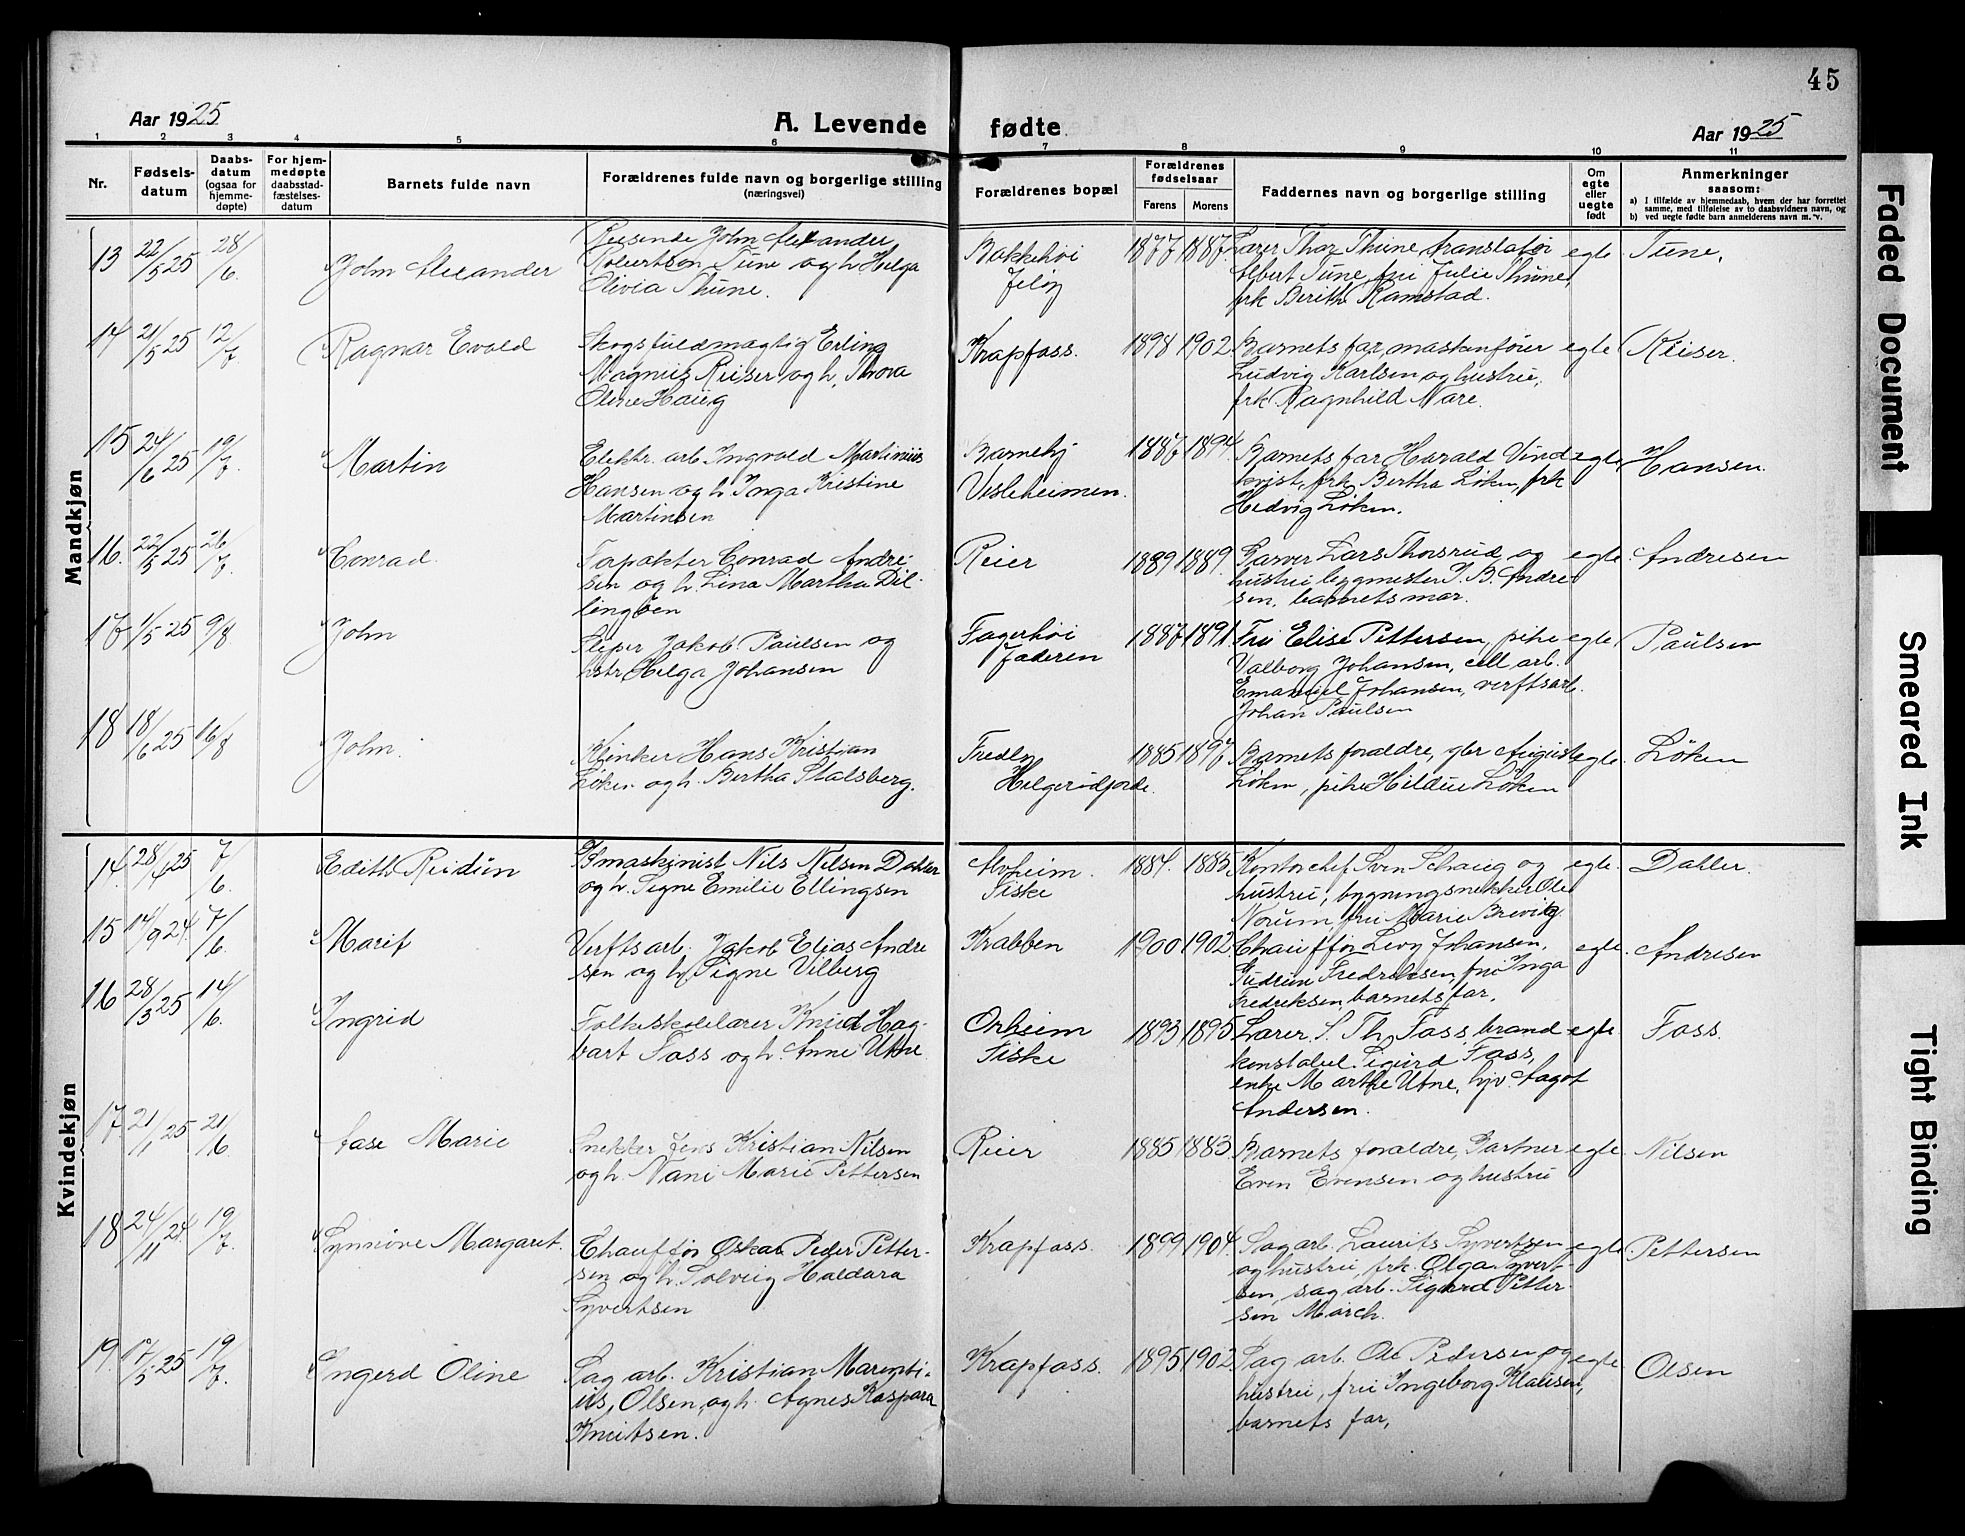 45
Aar 1925
A. Levende fødte.
Aar 1925
1 2 3 4 5 6 7 8 9 10 11
Nr.
Fødsels-
datum
Daabs-
datum
(ogsaa for
hjemme-
døpte)
For hjem-
medøpte
daabsstad-
fæstelses-
datum
Barnets fulde navn
Forældrenes fulde navn og borgerlige stilling
(næringsvei)
Forældrenes bopæl
Forældrenes
fødselsaar
Farens Morens
Faddernes navn og borgerlige stilling
Om
egte
eller
uegte
født
Anmerkninger
saasom:
a) I tilfælde av hjemmedaab, hvem der har forrettet
samme, med tilføielse av to daabsvidners navn, og
b) ved uegte fødte barn anmelderens navn m. v.
Mandkjøn
13 22/5 25 28/6
John Alexander
Reisende John Alexander
Robertson Tune og h. Helga
Olivia Thune.
Bakkehøi
Jeløy
1877 1887
Lærer Thor Thune, translatør
Albert Tune, fru Julie Thune,
frk Berith Ramstad.
egte
Tune.
14 21/5 25 12/7
Ragnar Evald
Skogsfuldmægtig Erling
Magnus Reiser og h. Thora
Oline Haug
Krapfoss.
1898 1902
Barnets far, maskinfører
Ludvig Karlsen og hustru,
frk. Ragnhild Nare.
egte
Reiser.
15 24/6 25 19/7
Martin
Elektr. arb. Ingvald Martinius
Hansen og h. Inga Kristine
Martinsen
Barneby
Vesleheimen.
1887 1894
Barnets far Harald Vind
kvist, frk. Bertha Løken, frk
Hedvig Løken.
egte
Hansen.
16. 22/5 25 26/7
Conrad.
Conrad Andre
sen og h. Lina Martha Dil-
lingøen
Reier
1889 1889
Garver Lars Thorsrud og
hustru bygmester J. B. Andre
sen, barnets mor.
egte
Andresen
17 1/5 25 9/8
John
Sliper Jakob Paulsen og
hstr. Helga Johansen
Fagerhøi
Jæderen
1887 1891
Fru Elise Pettersen, pike
Valborg Johansen, cell. arb.
Emanuel Johansen, verftsarb.
Johan Paulsen
egte
Paulsen
18 18/6 25 16/8
John.
Klinker Hans Kristian
Løken og h. Bertha Stalsberg.
Fredly
Helgerødjorde.
1885 1897
Barnets forældre, gbr August
Løken, pike Hildur Løken
egte
Løken
Kvindekjøn
14. 28/4 25 7/6
Edith Reidun
maskinist Nils Nilsen Dahler
og h. Signe Emilie Ellingsen
Alvheim.
Tiske
1884. 1885
Kontorchef Sven Schaug og
hustru, bygningsnekker Ole
Norum, fru Marie Brevig
egte.
Dahler.
15 14/9 24. 7/6
Marit
Verftsarb. Jakob Elias Andre
sen og h. Signe Vilberg
Krabben
1900 1902
Chauffør Levy Johansen,
Gudrun Fredriksen, fru Inga
Fredriksen, barnets far.
egte.
Andresen
16 28/3 25 14/6
Ingrid
Folkeskolelærer Knud Hag-
bart Foss og h. Anne Utne.
Orheim
Tiske
1893 1895
Lærer S. Th. Foss, brand
konstabel Sigurd Foss,
enke Marthe Utne, hjv. Aagot
Andersen.
egte
Foss.
17 21/1 25 21/6
Aase Marie
Snekker Jens Kristian Nilsen
og h. Nani Marie Pettersen
Reier
1885 1883
Barnets forældre, Gartner
Even Evensen og hustru
egte.
Nilsen
18 24/11 24. 19/7
Synnøve Margaret.
Chauffør Oskar Peder Petter-
sen og h. Solveig Haldara
Syvertsen
Krapfoss.
1899 1904.
Sag arb. Laurits Syvertsen
og hustru, frk. Olga Syvert-
sen, sag arb. Sigurd Petter
sen Mørch.
egte.
Pettersen
19. 17/5 25 19/7
Ingerd Oline
Sag arb. Kristian Marenti-
us, Olsen, og h. Agnes Kaspara
Knutsen.
Krapfoss.
1895 1902
Sag arb. Ole Pedersen og
hustru, fru Ingeborg Klausen,
barnets far,
egte
Olsen
Faded Document
Smeared Ink
Tight Binding